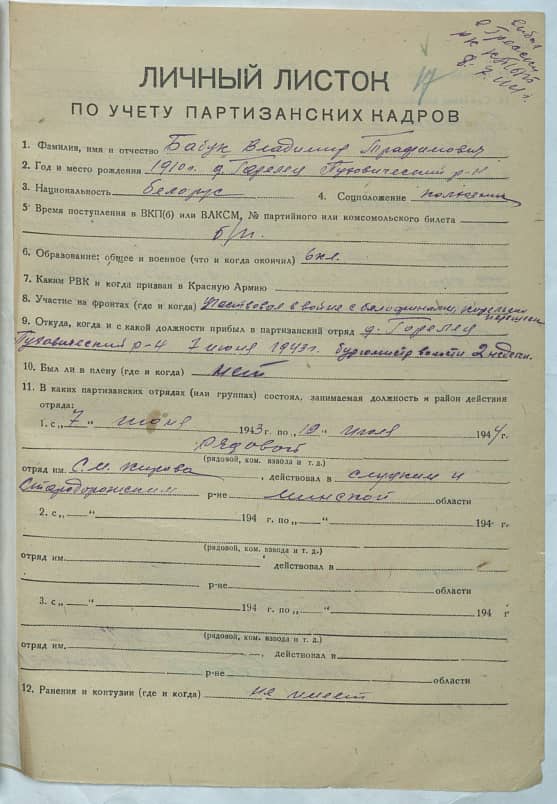 выбыл
в Гресский
РК КП(б)Б
8.7.44 г.
17
ЛИЧНЫЙ ЛИСТОК
ПО УЧЕТУ ПАРТИЗАНСКИХ КАДРОВ
1. Фамилия, имя и отчество Бабук Владимир Трафимович
2. Год и место рождения 1910 г. д. Горелец Пуховический р-н
3. Национальность белорус 4. Соцположение
5 Время поступления в ВКП(б) или ВЛКСМ, № партийного или комсомольского билета
б/п.
6. Образование: общее и военное (что и когда окончил) 6 кл.
7. Каким РВК и когда призван в Красную Армию
8. Участие на фронтах (где и когда) Участвовал в войне с белофинами,
перешеек
9. Откуда, когда и с какой должности прибыл в партизанский отряд д. Горелец
Пуховический р-н 7 июня 1943 г. бургомистр волости 2 недели.
10. Был ли в плену (где и когда) нет
11. В каких партизанских отрядах (или группах) состоял, занимаемая должность и район действия
отряда:
1. с „7“ июня 1943 г. по „12“ июля 1944 г.
рядовой
(рядовой, ком. взвода и т. д.)
отряд им. С. М. Кирова, действовал в слуцким и
Стародорожским р-не минской области
2. с „ “ 194 г. по „ “ 194 г.
(рядовой, ком. взвода и т. д.)
отряд им. , действовал в
р-не области
3. с „ “ 194 г. по „ “ 194 г
(рядовой, ком. взвода и т. д.)
отряд им. , действовал в
р-не области
12. Ранения и контузии (где и когда) не имеет